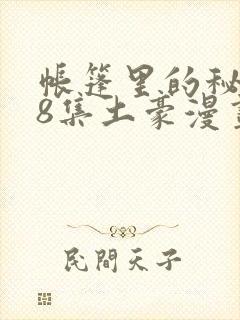 帳篷里的秘
8集土豪漫
民間天子